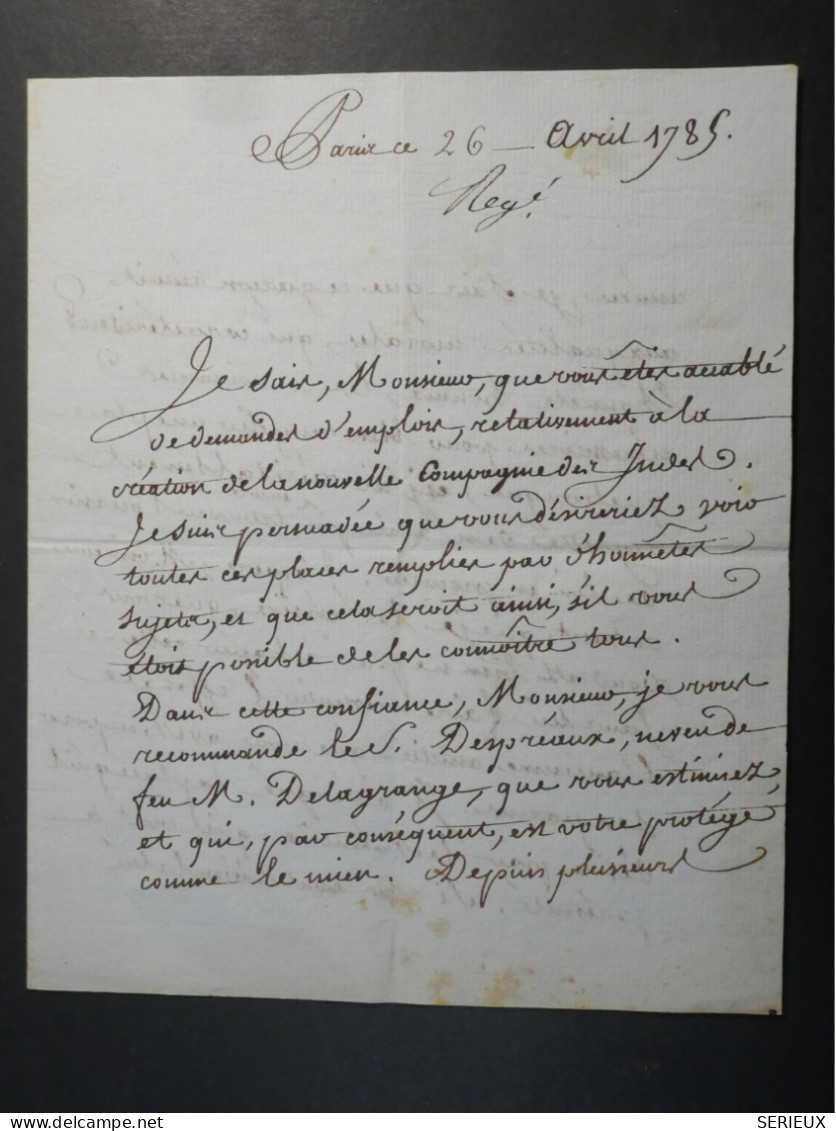 Paris ce 26 — Avril 1785.
Je sais, Monsieur, que vous êtes accablé
de demandes d'emplois, relativement à la
création de la nouvelle Compagnie des Indes.
Je suis persuadée que vous désireriez voir
toutes ces places remplies par d'honnêtes
sujets, et que cela seroit ainsi, s'il vous
étoit possible de les connoître tous.
Dans cette confiance, Monsieur, je vous
recommande le S. Despréaux, neveu de
feu M. Delagrange, que vous estimiez,
et qui, par conséquent, est votre protégé
comme le mien. Depuis plusieurs
SERIEUX